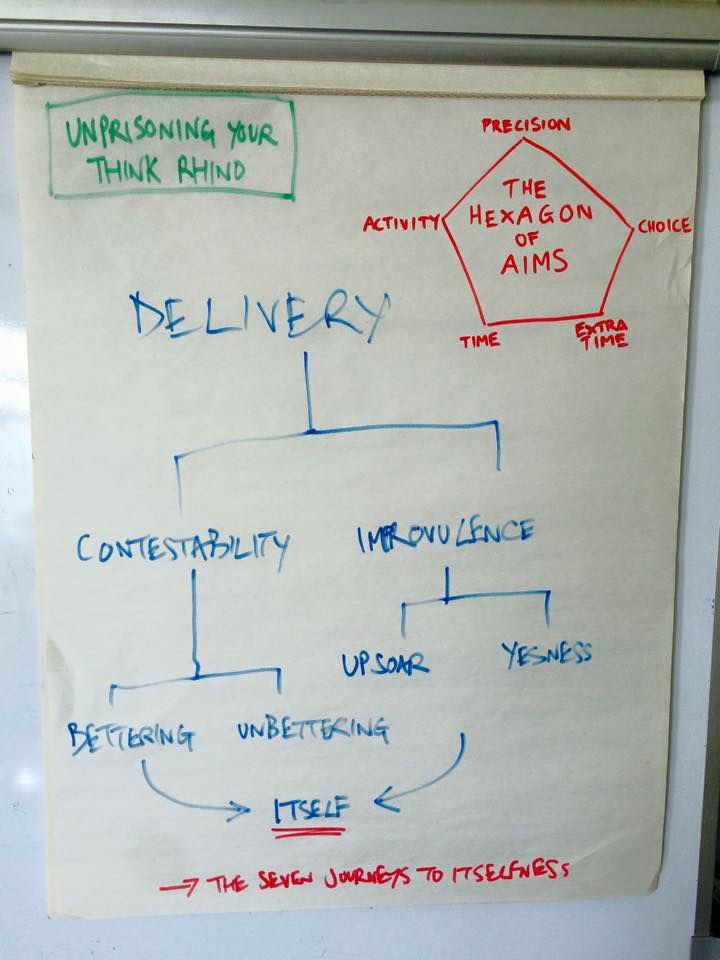 UNPRISONING YOUR
THINK RHINO
PRECISION
THE
HEXAGON
OF
AIMS
ACTIVITY
CHOICE
TIME
EXTRA
TIME
DELIVERY
CONTESTABILITY
IMPROVULENCE
UPSOAR
YESNESS
BETTERING
UNBETTERING
ITSELF
→ THE SEVEN JOURNEYS TO ITSELFNESS